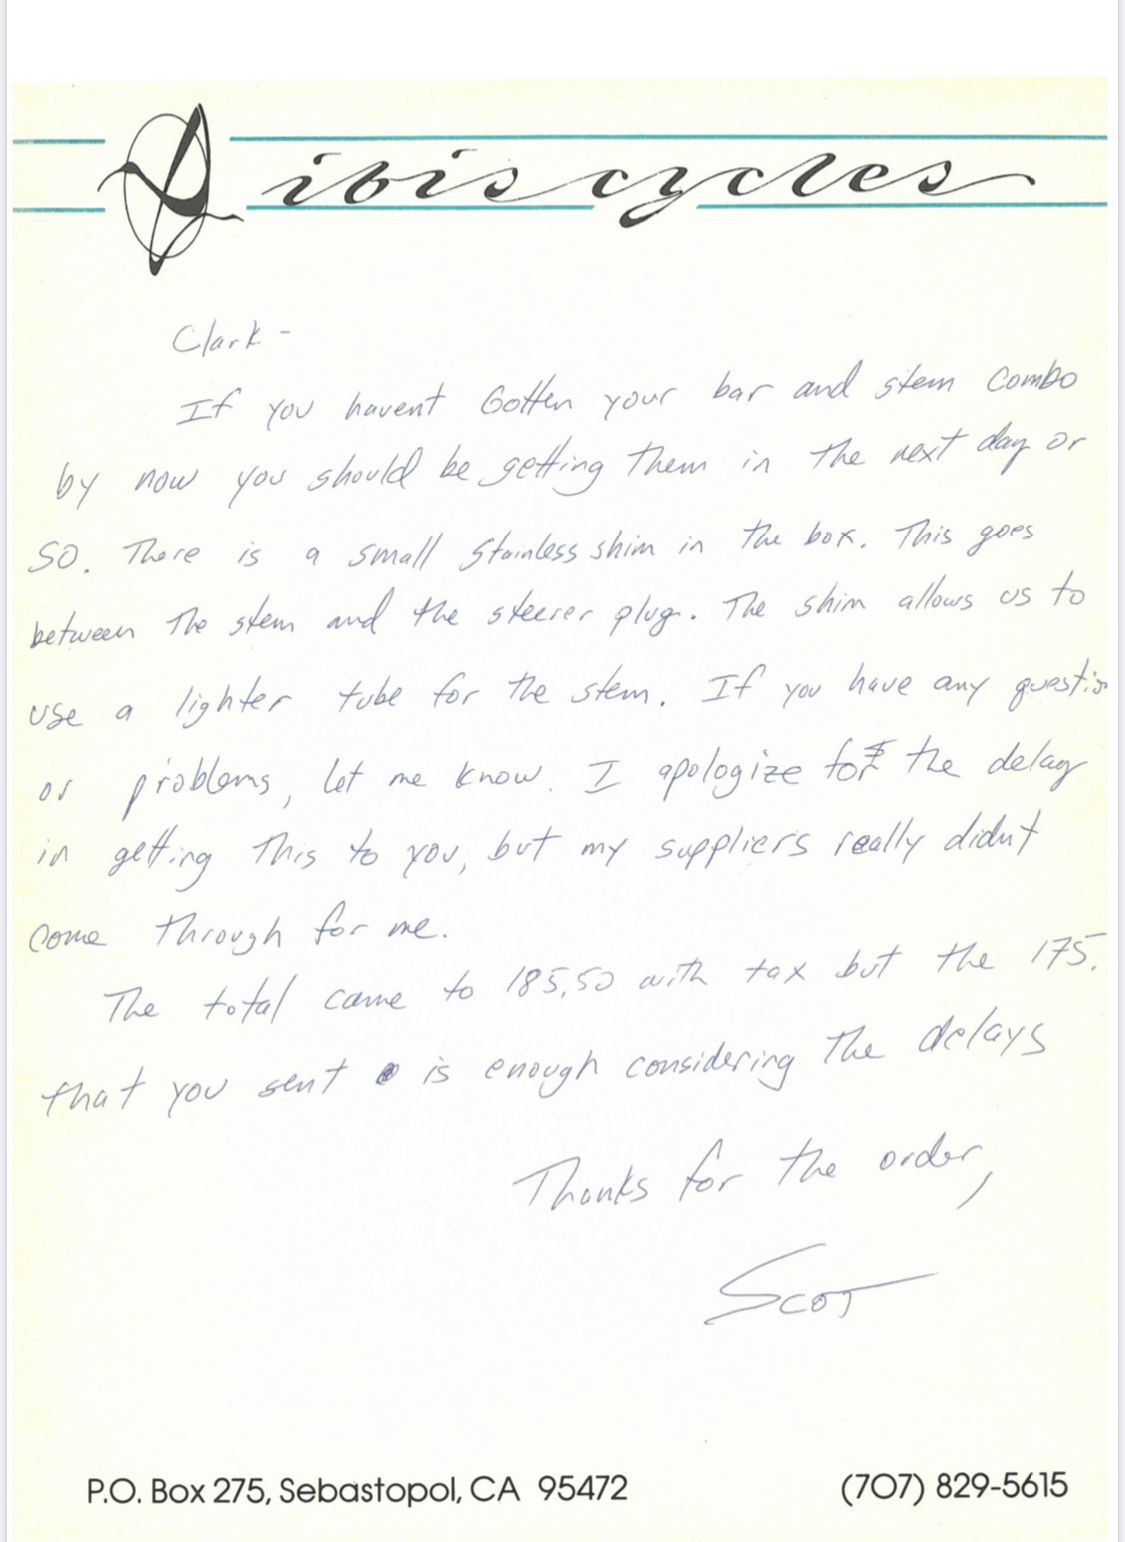 ibis cycles
Clark -
If you havent Gotten your bar and stem combo
by now you should be getting them in the next day or
SO. There is a small Stainless shim in the box. This goes
between The stem and the steerer plug. The shim allows us to
use a lighter tube for the stem. If you have any questio
or problems, let me know. I apologize for the delay
in getting This to you, but my suppliers really didnt
come through for me.
The total came to 185.50 with tax but the 175.
that you sent is enough considering the delays
Thanks for the order,
Scot
P.O. Box 275, Sebastopol, CA 95472
(707) 829-5615